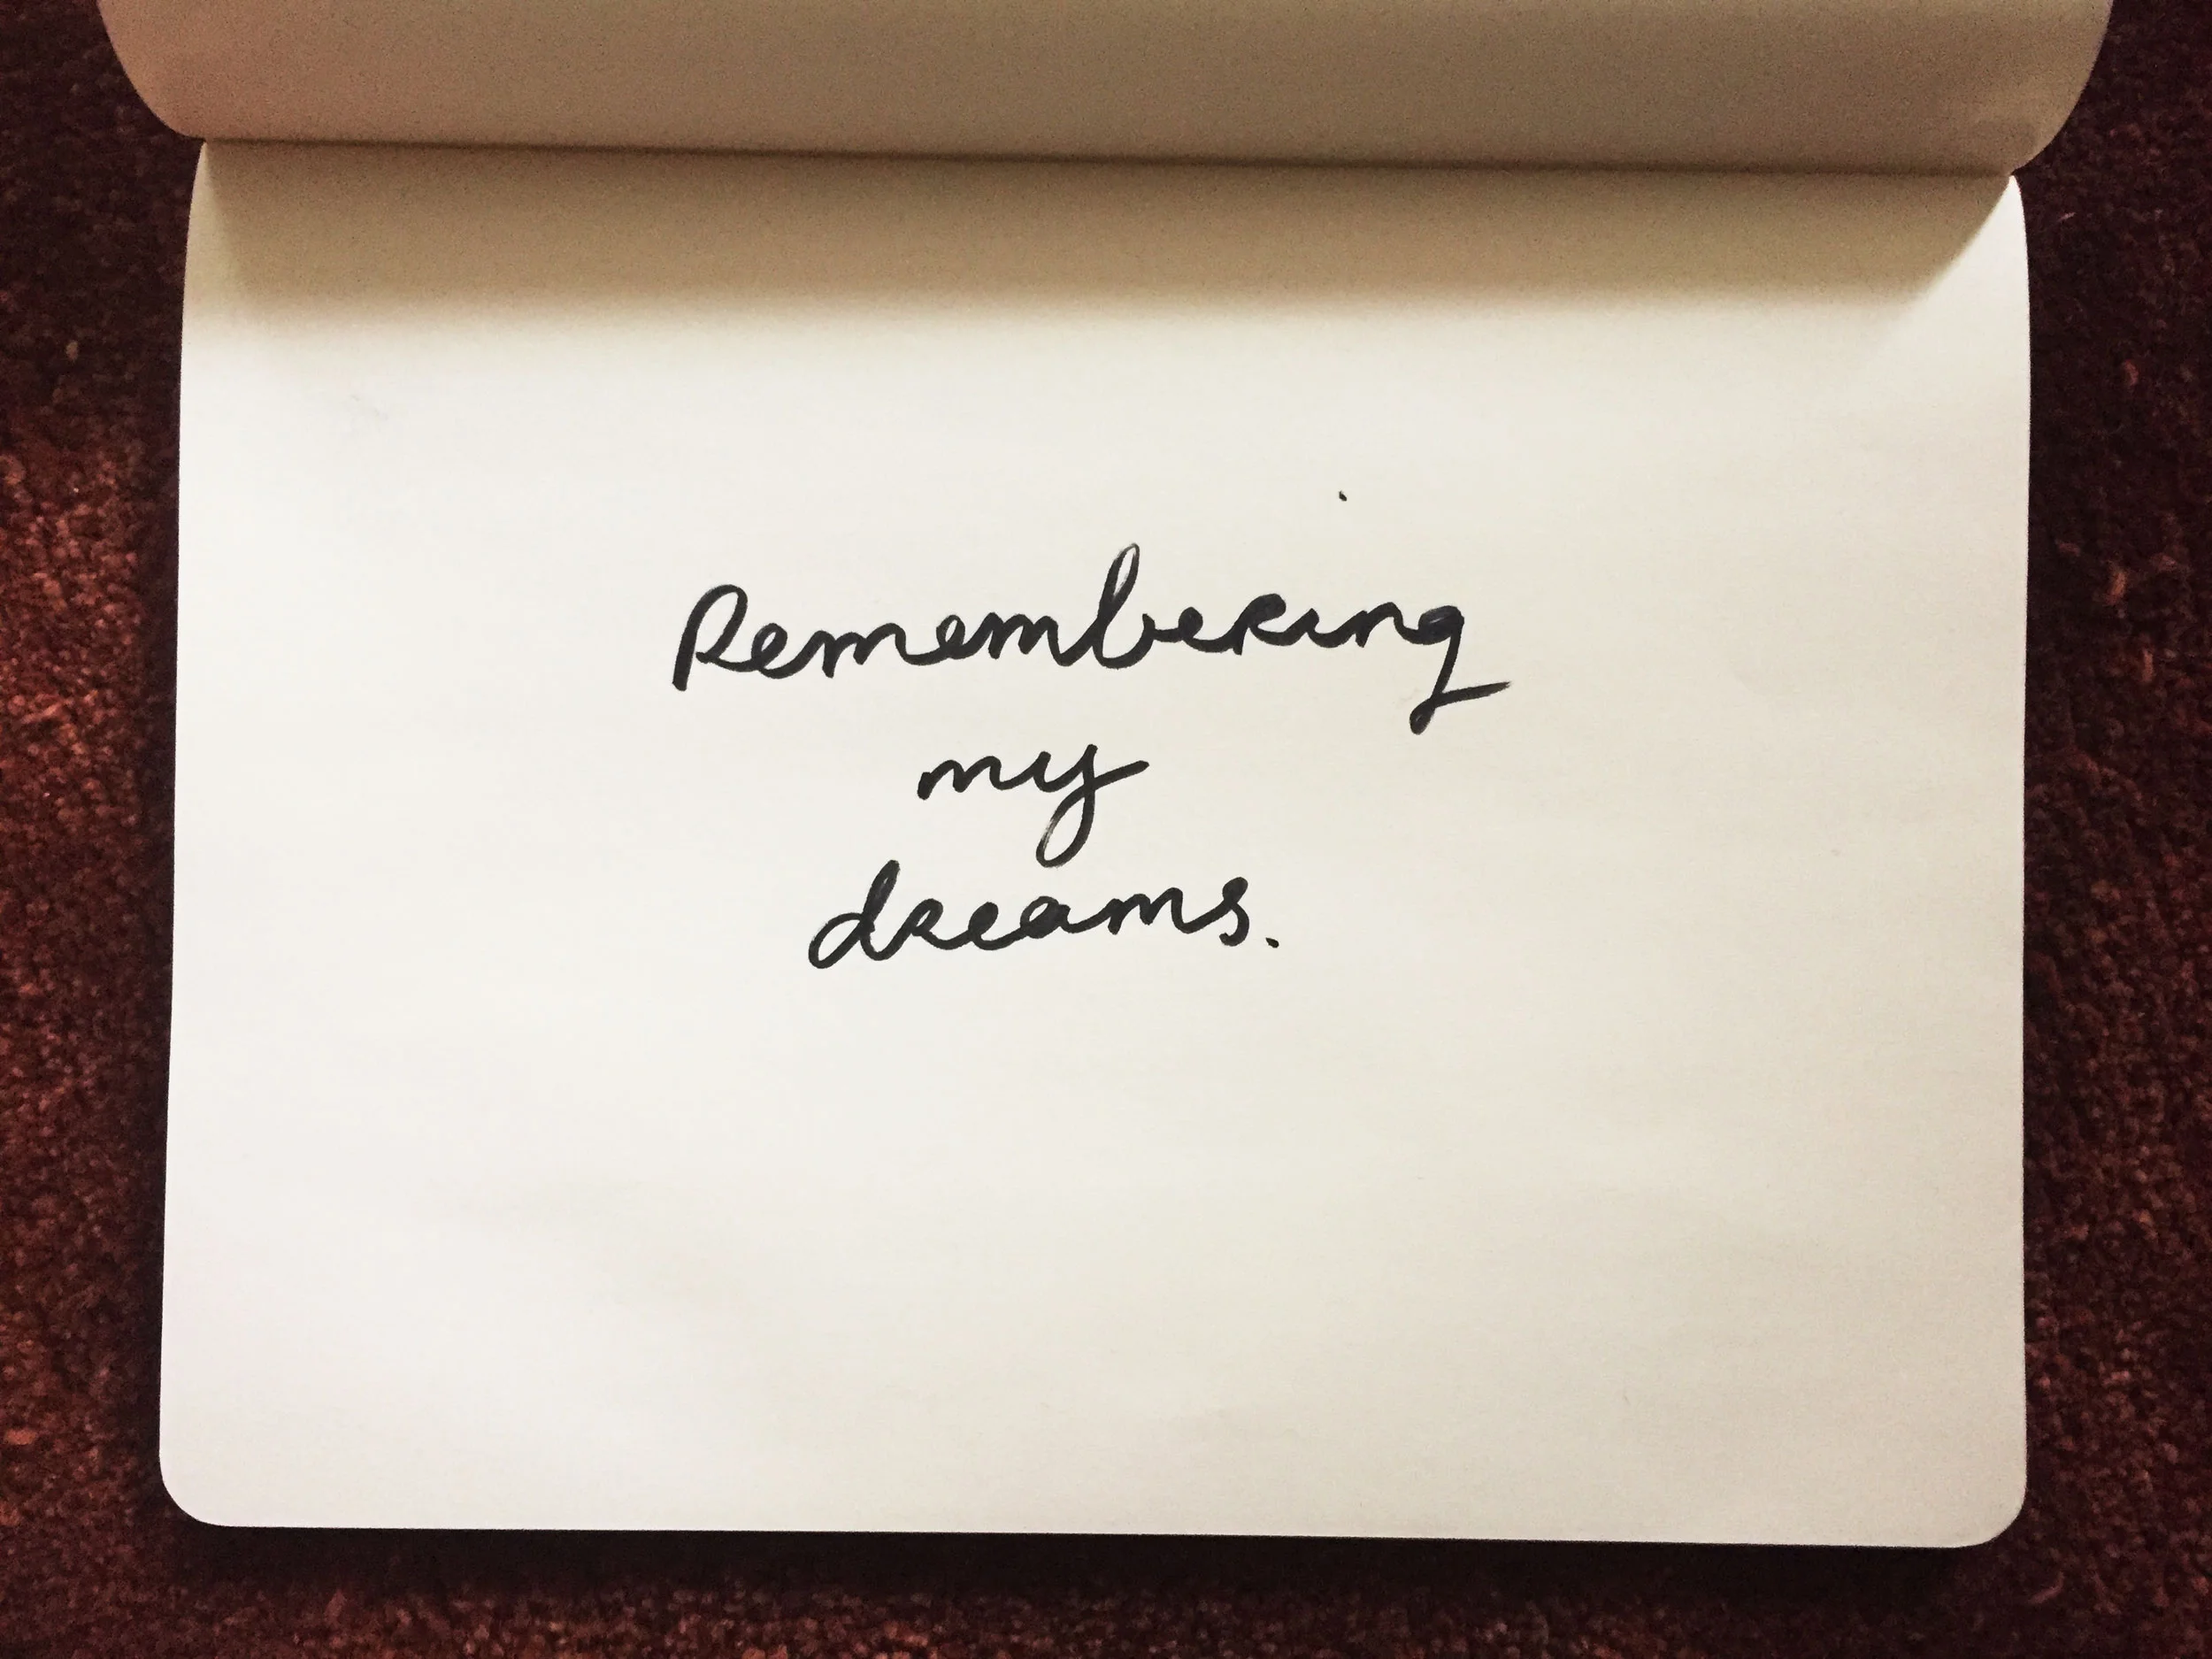 Remembering
my
dreams.